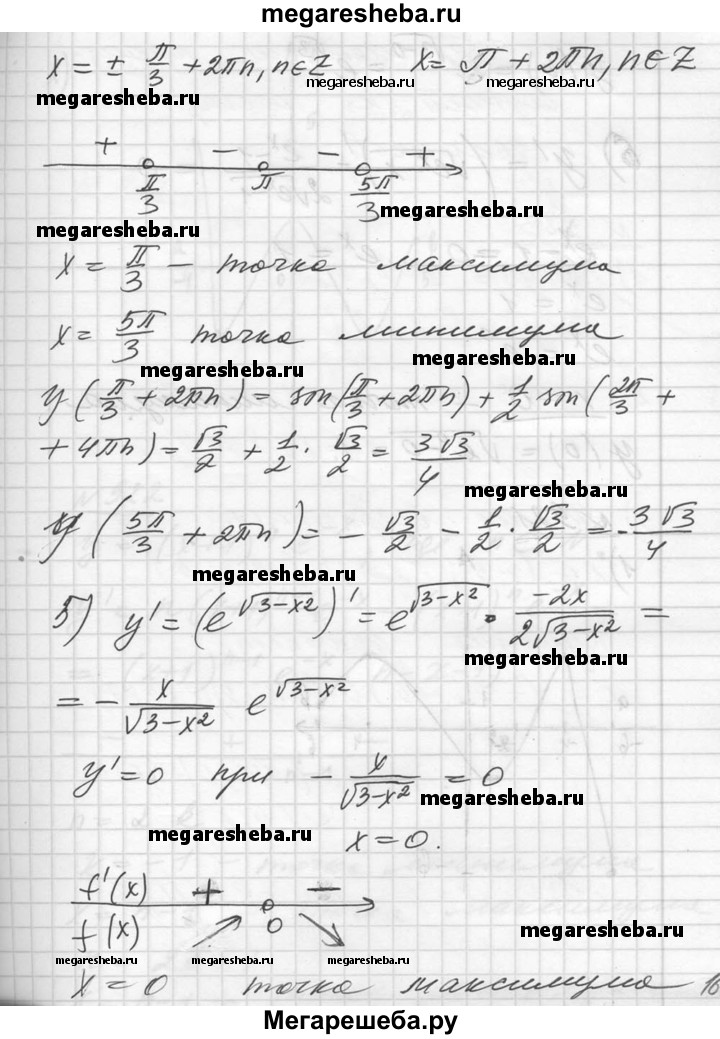 megaresheba.ru
x = ± π/3 + 2πn, n∈Z   x = π + 2πn, n∈Z
megaresheba.ru megaresheba.ru
megaresheba.ru
+ − − +
π/3 π 5π/3
megaresheba.ru
megaresheba.ru
x = π/3 − точка максимума
x = 5π/3 точка минимума
megaresheba.ru megaresheba.ru
y(π/3 + 2πn) = sin(π/3 + 2πn) + 1/2 sin(2π/3 +
+ 4πn) = √3/2 + 1/2 · √3/2 = 3√3/4
megaresheba.ru
y(5π/3 + 2πn) = − √3/2 − 1/2 · √3/2 = −3√3/4
megaresheba.ru
5) y' = (e^√(3−x²))' = e^√(3−x²) · −2x/(2√(3−x²)) =
megaresheba.ru
= − x/√(3−x²) e^√(3−x²)
y' = 0 при − x/√(3−x²) = 0
megaresheba.ru
megaresheba.ru
x = 0.
f'(x) + −
f(x) ↗ 0 ↘
megaresheba.ru
megaresheba.ru megaresheba.ru megaresheba.ru
x = 0 точка максимума
Мегарешеба.ру